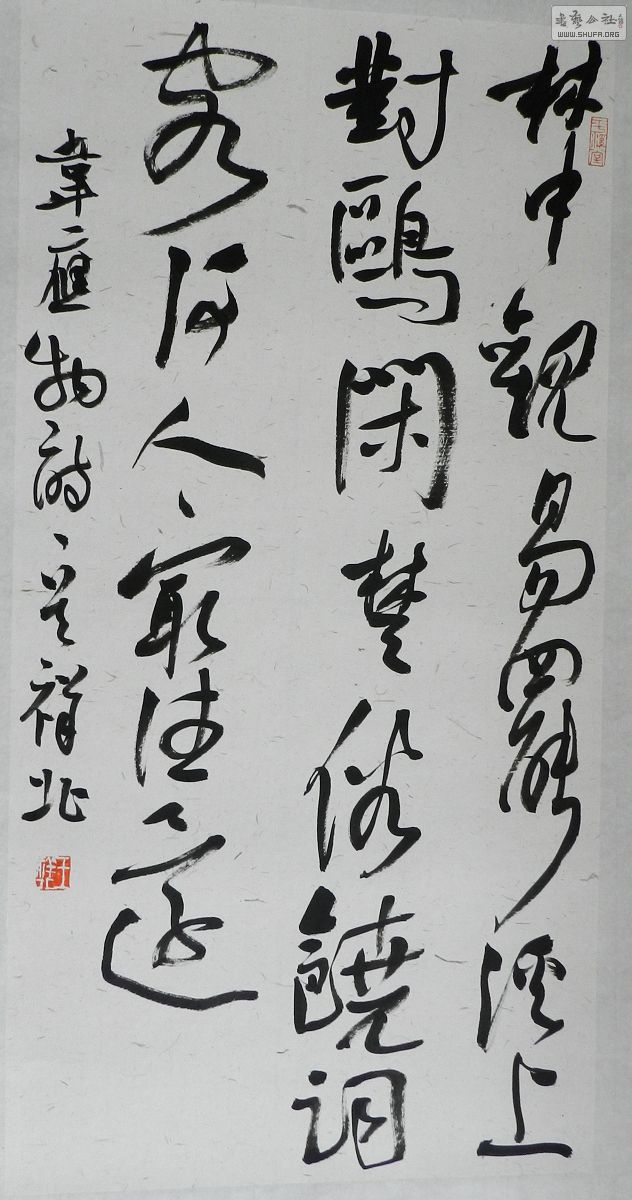 書藝公社
WWW.SHUFA.ORG
林中觀易罷溪上
對鷗閑楚俗饒詞
客何人最往還
韋應物詩 祥北